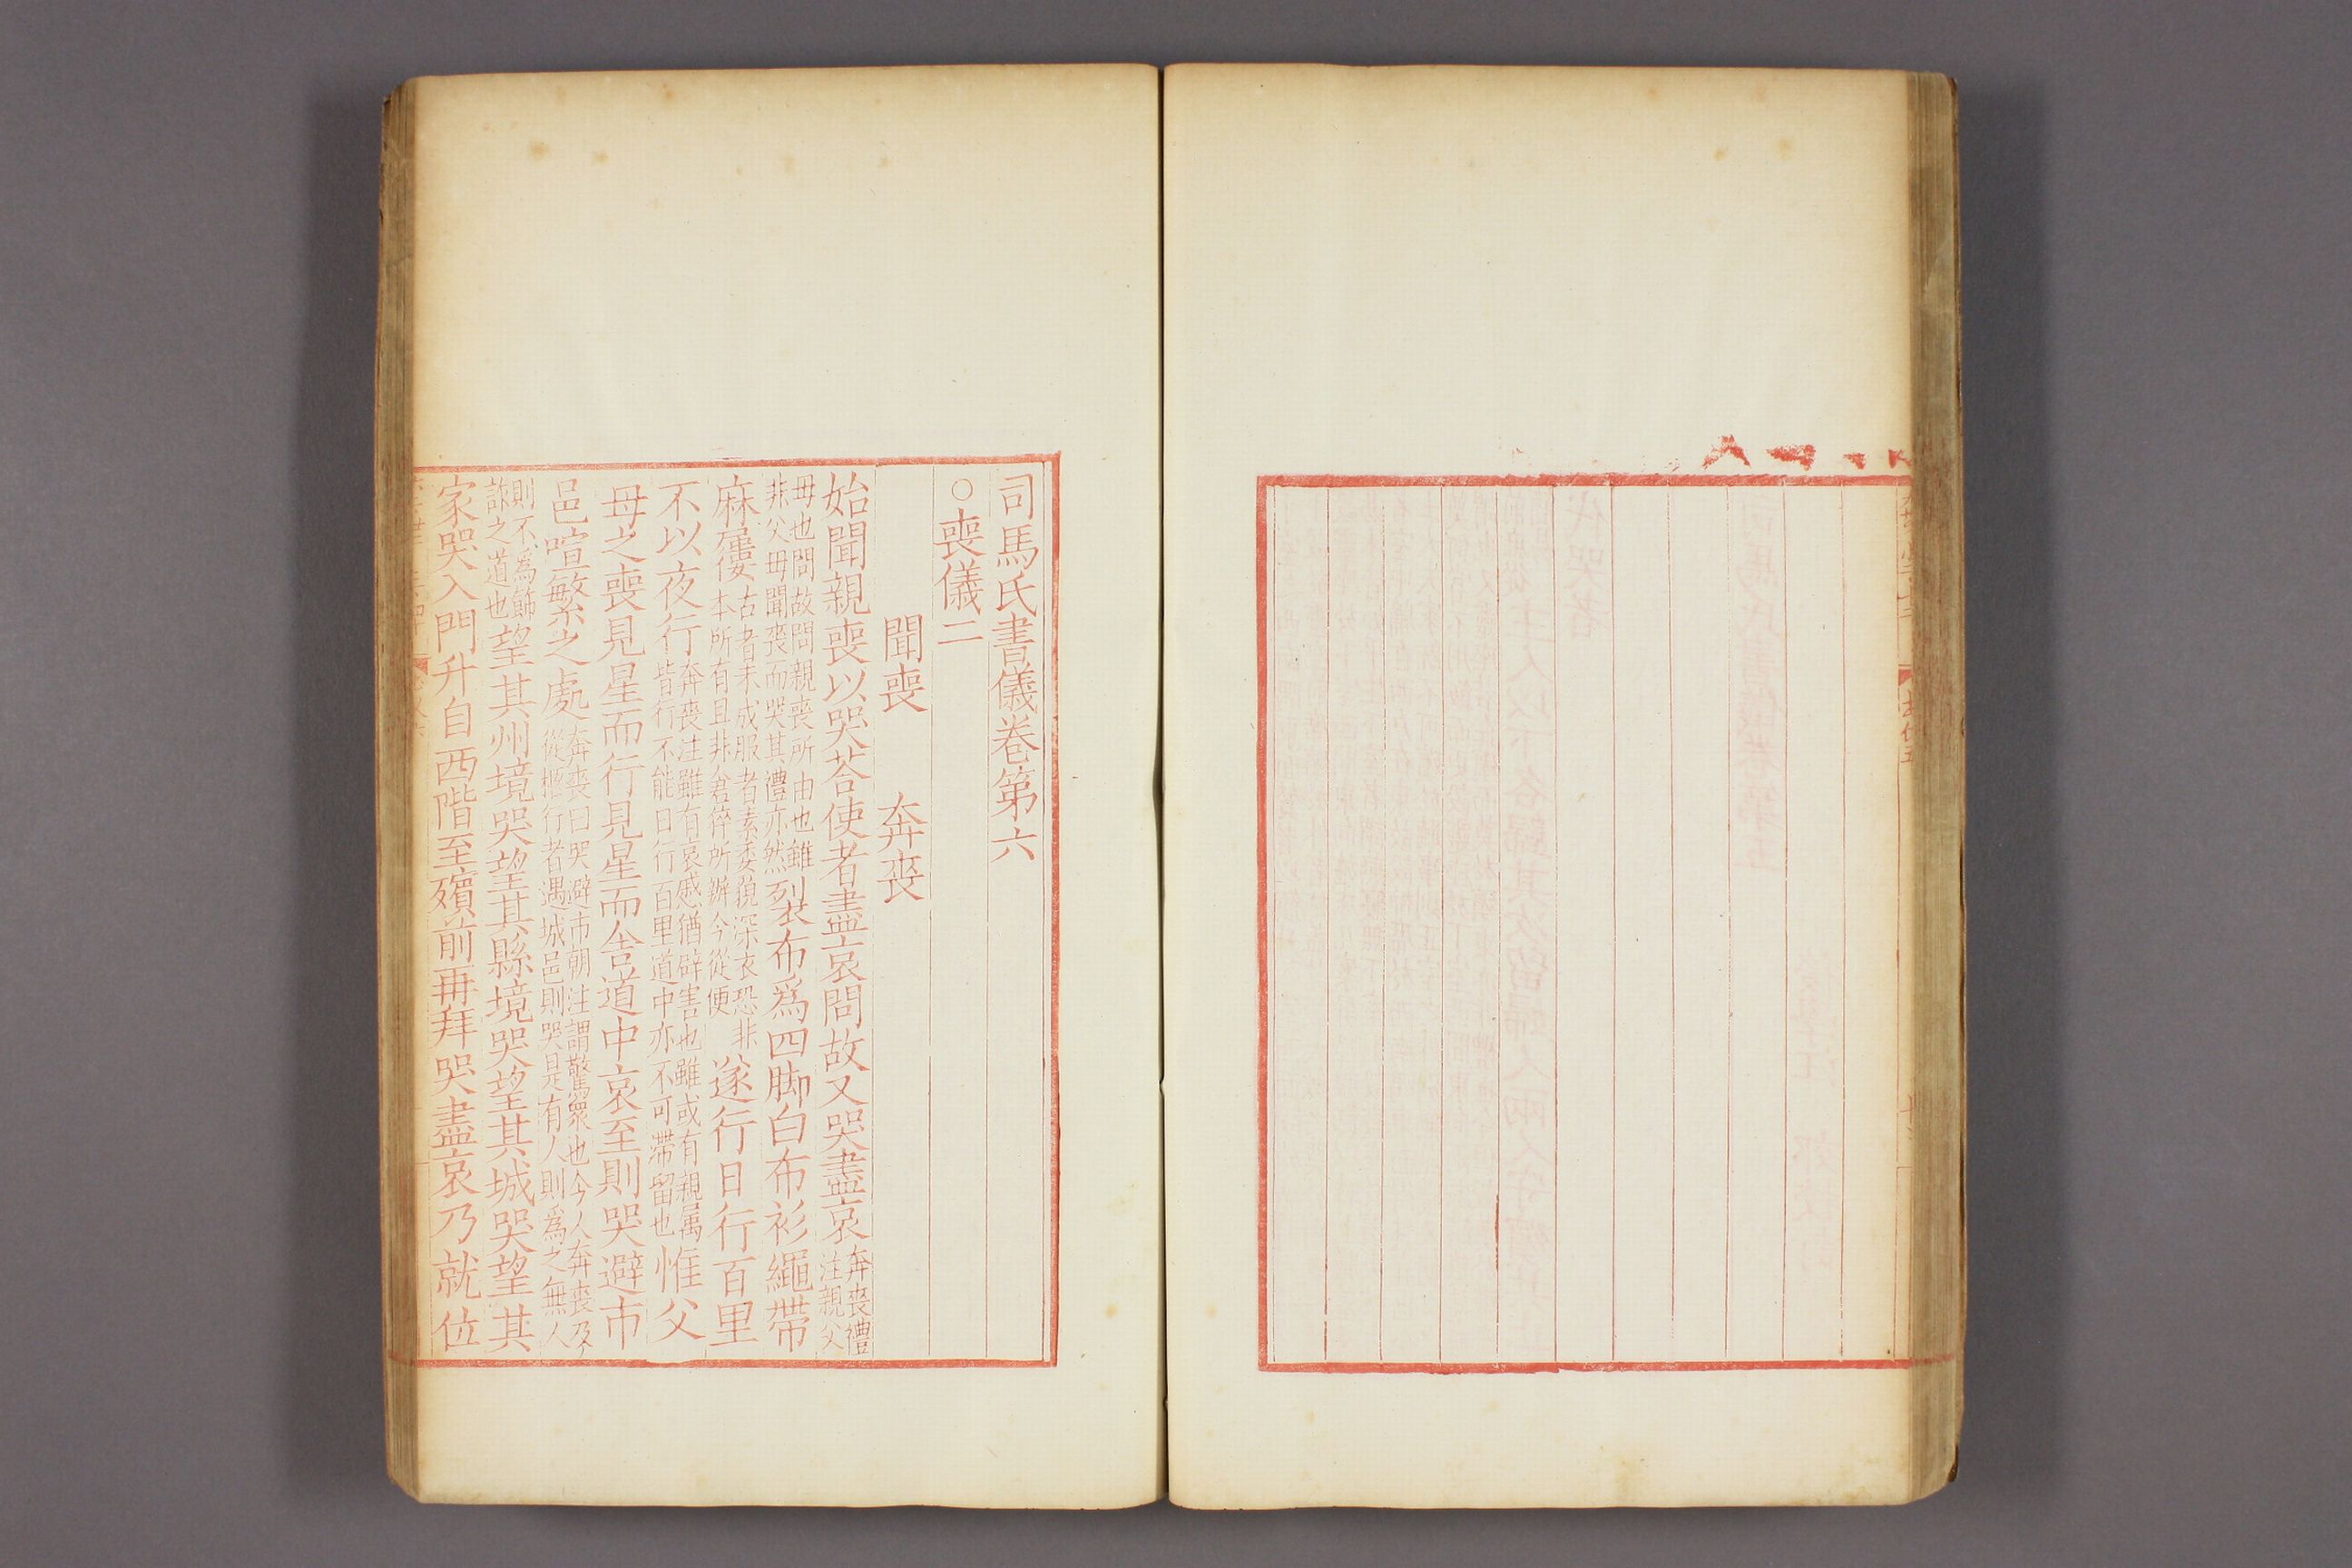 司馬氏書儀卷第六
○喪儀二
聞喪　奔喪
始聞親喪以哭荅使者盡哀問故又哭盡哀奔喪禮注親父
母也問故問親喪所由也雖非父母聞喪而哭其禮亦然裂布爲四脚白布衫繩帶
麻屨古者未成服者素委貌深衣恐非本所有且非倉猝所辦今從便遂行日行百里
不以夜行奔喪注雖有哀戚猶辟害也雖或有親屬皆行不能日行百里道中亦不可滯留也惟父
母之喪見星而行見星而舍道中哀至則哭避市
邑喧繁之處奔喪曰哭避市朝注謂驚衆也今人奔喪及從柩行者遇城邑則哭是有人則爲之無人
則不爲飾詐之道也望其州境哭望其縣境哭望其城哭望其
家哭入門升自西階至殯前再拜哭盡哀乃就位